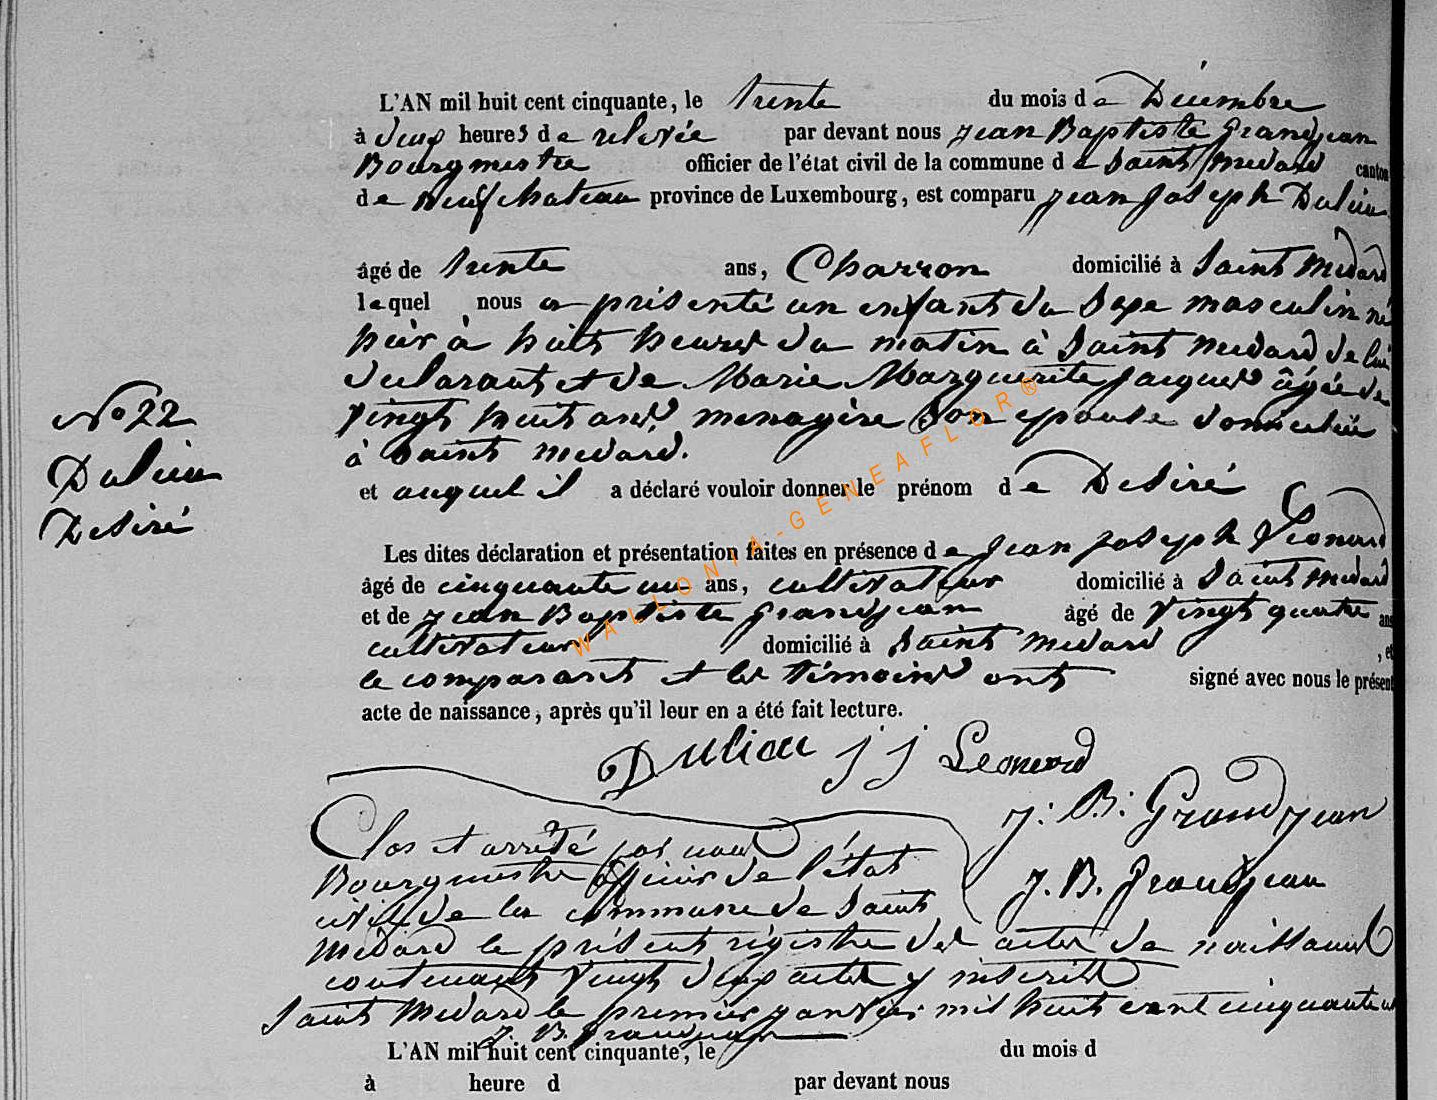 L'AN mil huit cent cinquante, le trente du mois de Décembre
à deux heures de relevée par devant nous jean Baptiste Grandjean
Bourgmestre officier de l'état civil de la commune de Saint Médard canton
de Neufchateau province de Luxembourg, est comparu jean joseph Duliau
âgé de trente ans, Charron domicilié à Saint Médard
lequel nous a présenté un enfant du Sexe masculin né
hier à huit heures du matin à Saint Médard de lui
déclarant et de Marie Marguerite jacques âgée de
vingt huit ans, menagère Son epouse domiciliée
à Saint Médard.
N° 22
Duliau
Désiré
et auquel il a déclaré vouloir donner le prénom de Désiré
Les dites déclaration et présentation faites en présence de jean joseph Léonard
âgé de cinquante un ans, cultivateur domicilié à Saint Médard
et de jean Baptiste Grandjean âgé de vingt quatre ans
cultivateur domicilié à Saint Médard , et
le comparant et les témoins ont signé avec nous le présent
acte de naissance, après qu'il leur en a été fait lecture.
Duliau j j Leonard
J: B: Grandjean
Clos et arrêté par nous
J. B. Grandjean
Bourgmestre officier de l'état
civil de la commune de Saint
Médard le présent régistre des actes de naissances
contenant vingt deux actes y inscrits
Saint Médard le premier janvier mil huit cent cinquante un
J. B. Grandjean
L'AN mil huit cent cinquante, le du mois d
à heure d par devant nous
WALLONIA-GENEAFLOR®